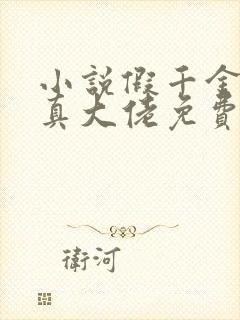 小說假千金
真大佬免費
衛河